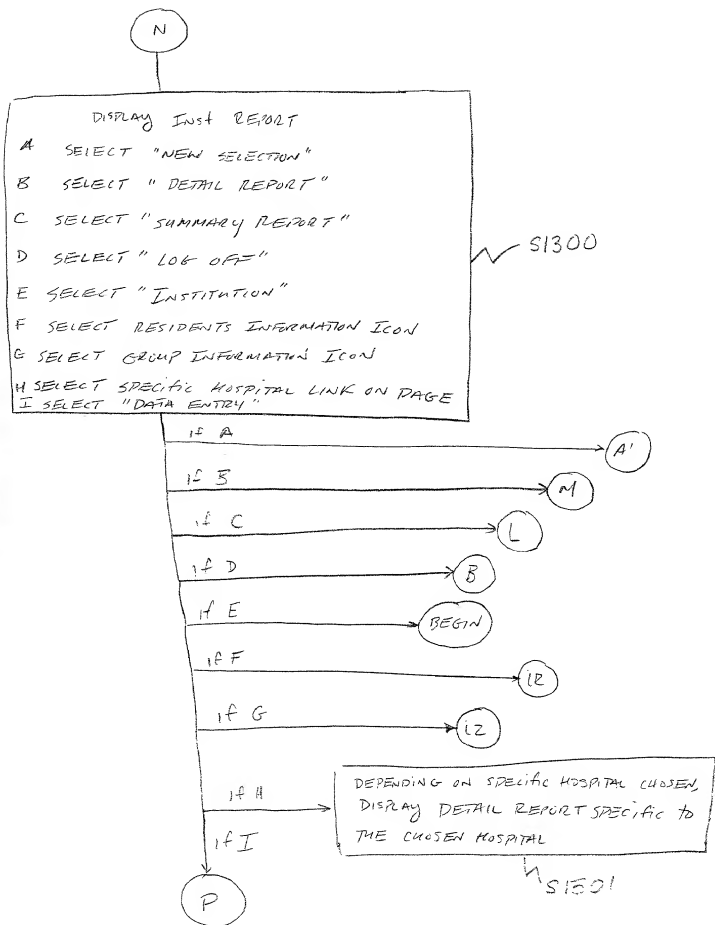 N
DISPLAY INST REPORT
A SELECT "NEW SELECTION"
B SELECT "DETAIL REPORT"
C SELECT "SUMMARY REPORT"
D SELECT "LOG OFF"
E SELECT "INSTITUTION"
F SELECT RESIDENTS INFORMATION ICON
G SELECT GROUP INFORMATION ICON
H SELECT SPECIFIC HOSPITAL LINK ON PAGE
I SELECT "DATA ENTRY"
S1300
if A
A'
if B
M
if C
L
if D
B
if E
BEGIN
if F
if G
if H
DEPENDING ON SPECIFIC HOSPITAL CHOSEN,
DISPLAY DETAIL REPORT SPECIFIC TO
THE CHOSEN HOSPITAL
if I
P